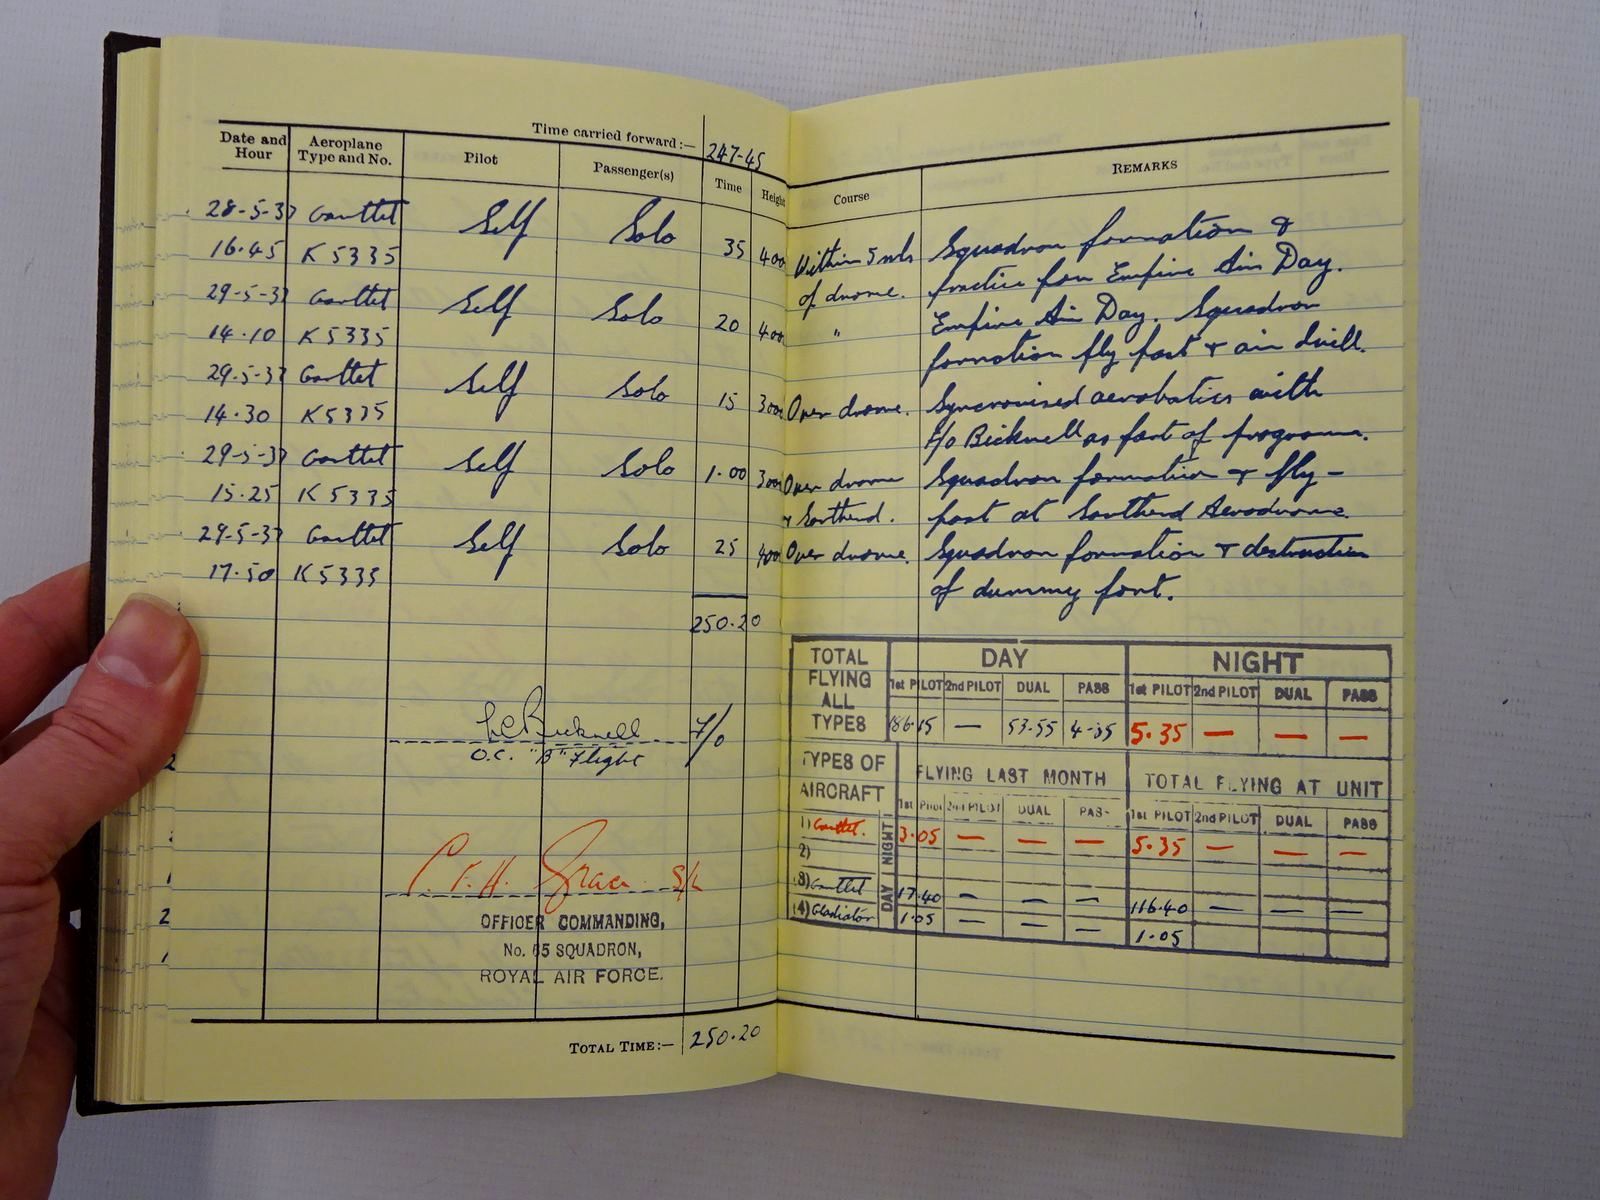 Time carried forward:— 247-45
Date and Hour Aeroplane Type and No. Pilot Passenger(s) Time Height Course REMARKS
28-5-37 Gauntlet Self Solo 35 4000 Within 5 mls Squadron formation &
16.45 K5335 of drome. practice for Empire Air Day.
29-5-37 Gauntlet Self Solo 20 4000 " Empire Air Day. Squadron
14.10 K5335 formation fly past & air drill.
29.5-37 Gauntlet Self Solo 15 3000 Over drome. Syncronised aerobatics with
14.30 K5335 F/o Bicknell as part of programme.
29-5-37 Gauntlet Self Solo 1.00 3000 Over drome Squadron formation & fly-
15.25 K5335 & Southend. past at Southend Aerodrome.
29-5-37 Gauntlet Self Solo 25 4000 Over drome. Squadron formation & destruction
17.50 K5335 of dummy fort.
250.20
Bicknell F/O
O.C. "B" Flight
C.F.H. Grace S/L
OFFICER COMMANDING,
No. 65 SQUADRON,
ROYAL AIR FORCE.
TOTAL TIME:— 250.20
TOTAL FLYING ALL TYPES DAY NIGHT
1st PILOT 2nd PILOT DUAL PASS 1st PILOT 2nd PILOT DUAL PASS
186.15 — 53.55 4.35 5.35 — — —
TYPES OF AIRCRAFT FLYING LAST MONTH TOTAL FLYING AT UNIT
1st PILOT 2nd PILOT DUAL PASS 1st PILOT 2nd PILOT DUAL PASS
DAY NIGHT
1) Gauntlet. 3.05 — — — 5.35 — — —
2)
(3) Gauntlet 17.40 — — — 116.40 — — —
(4) Gladiator 1.05 — — — 1.05